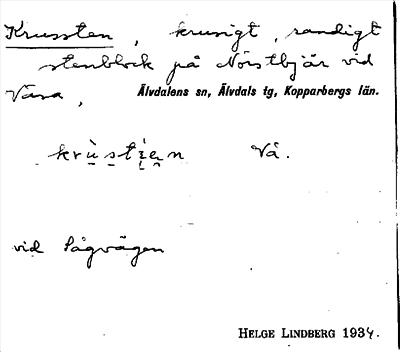 Krussten, krusigt, randigt
stenblock på Norstbjär vid
Väsa, Älvdalens sn, Älvdals tg, Kopparbergs län.
krù̱s̱ti̱e̱n Vå.
vid Sågvägen
HELGE LINDBERG 1934.